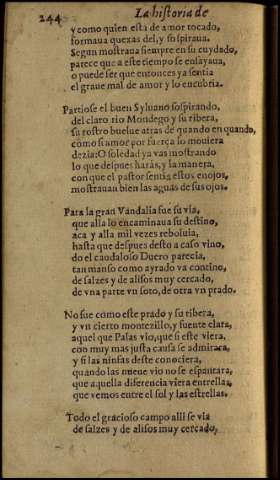 244
La historia de
y como quien està de amor tocado,
formaua quexas del, y sospiraua.
Segun mostraua siempre en su cuydado,
parece que a este tiempo se ensayaua,
o puede ser que entonces ya sentia
el graue mal de amor y lo encubria.
Partiose el buen Syluano sospirando,
del claro rio Mondego y su ribera,
su rostro buelue atras de quando en quando,
como si amor por fuerça lo mouiera
dezia: O soledad ya vas mostrando
lo que despues haràs, y la manera,
con que el pastor sentia estos enojos,
mostrauan bien las aguas de sus ojos.
Para la gran Vandalia fue su via,
que alla lo encaminaua su destino,
aca y alla mil vezes reboluia,
hasta que despues desto a caso vino,
do el caudaloso Duero parecia,
tan manso como ayrado va contino,
de salzes y de alisos muy cercado,
de vna parte vn soto, de otra vn prado.
No fue como este prado y su ribera,
y vn cierto montezillo, y fuente clara,
aquel que Palas vio, que si este viera,
con muy mas justa causa se admirara,
y si las ninfas deste conociera,
quando las nueue vio no se espantara,
que aquella diferencia viera entrellas,
que vemos entre el sol y las estrellas.
Todo el gracioso campo alli se via
de salzes y de alisos muy cercado,